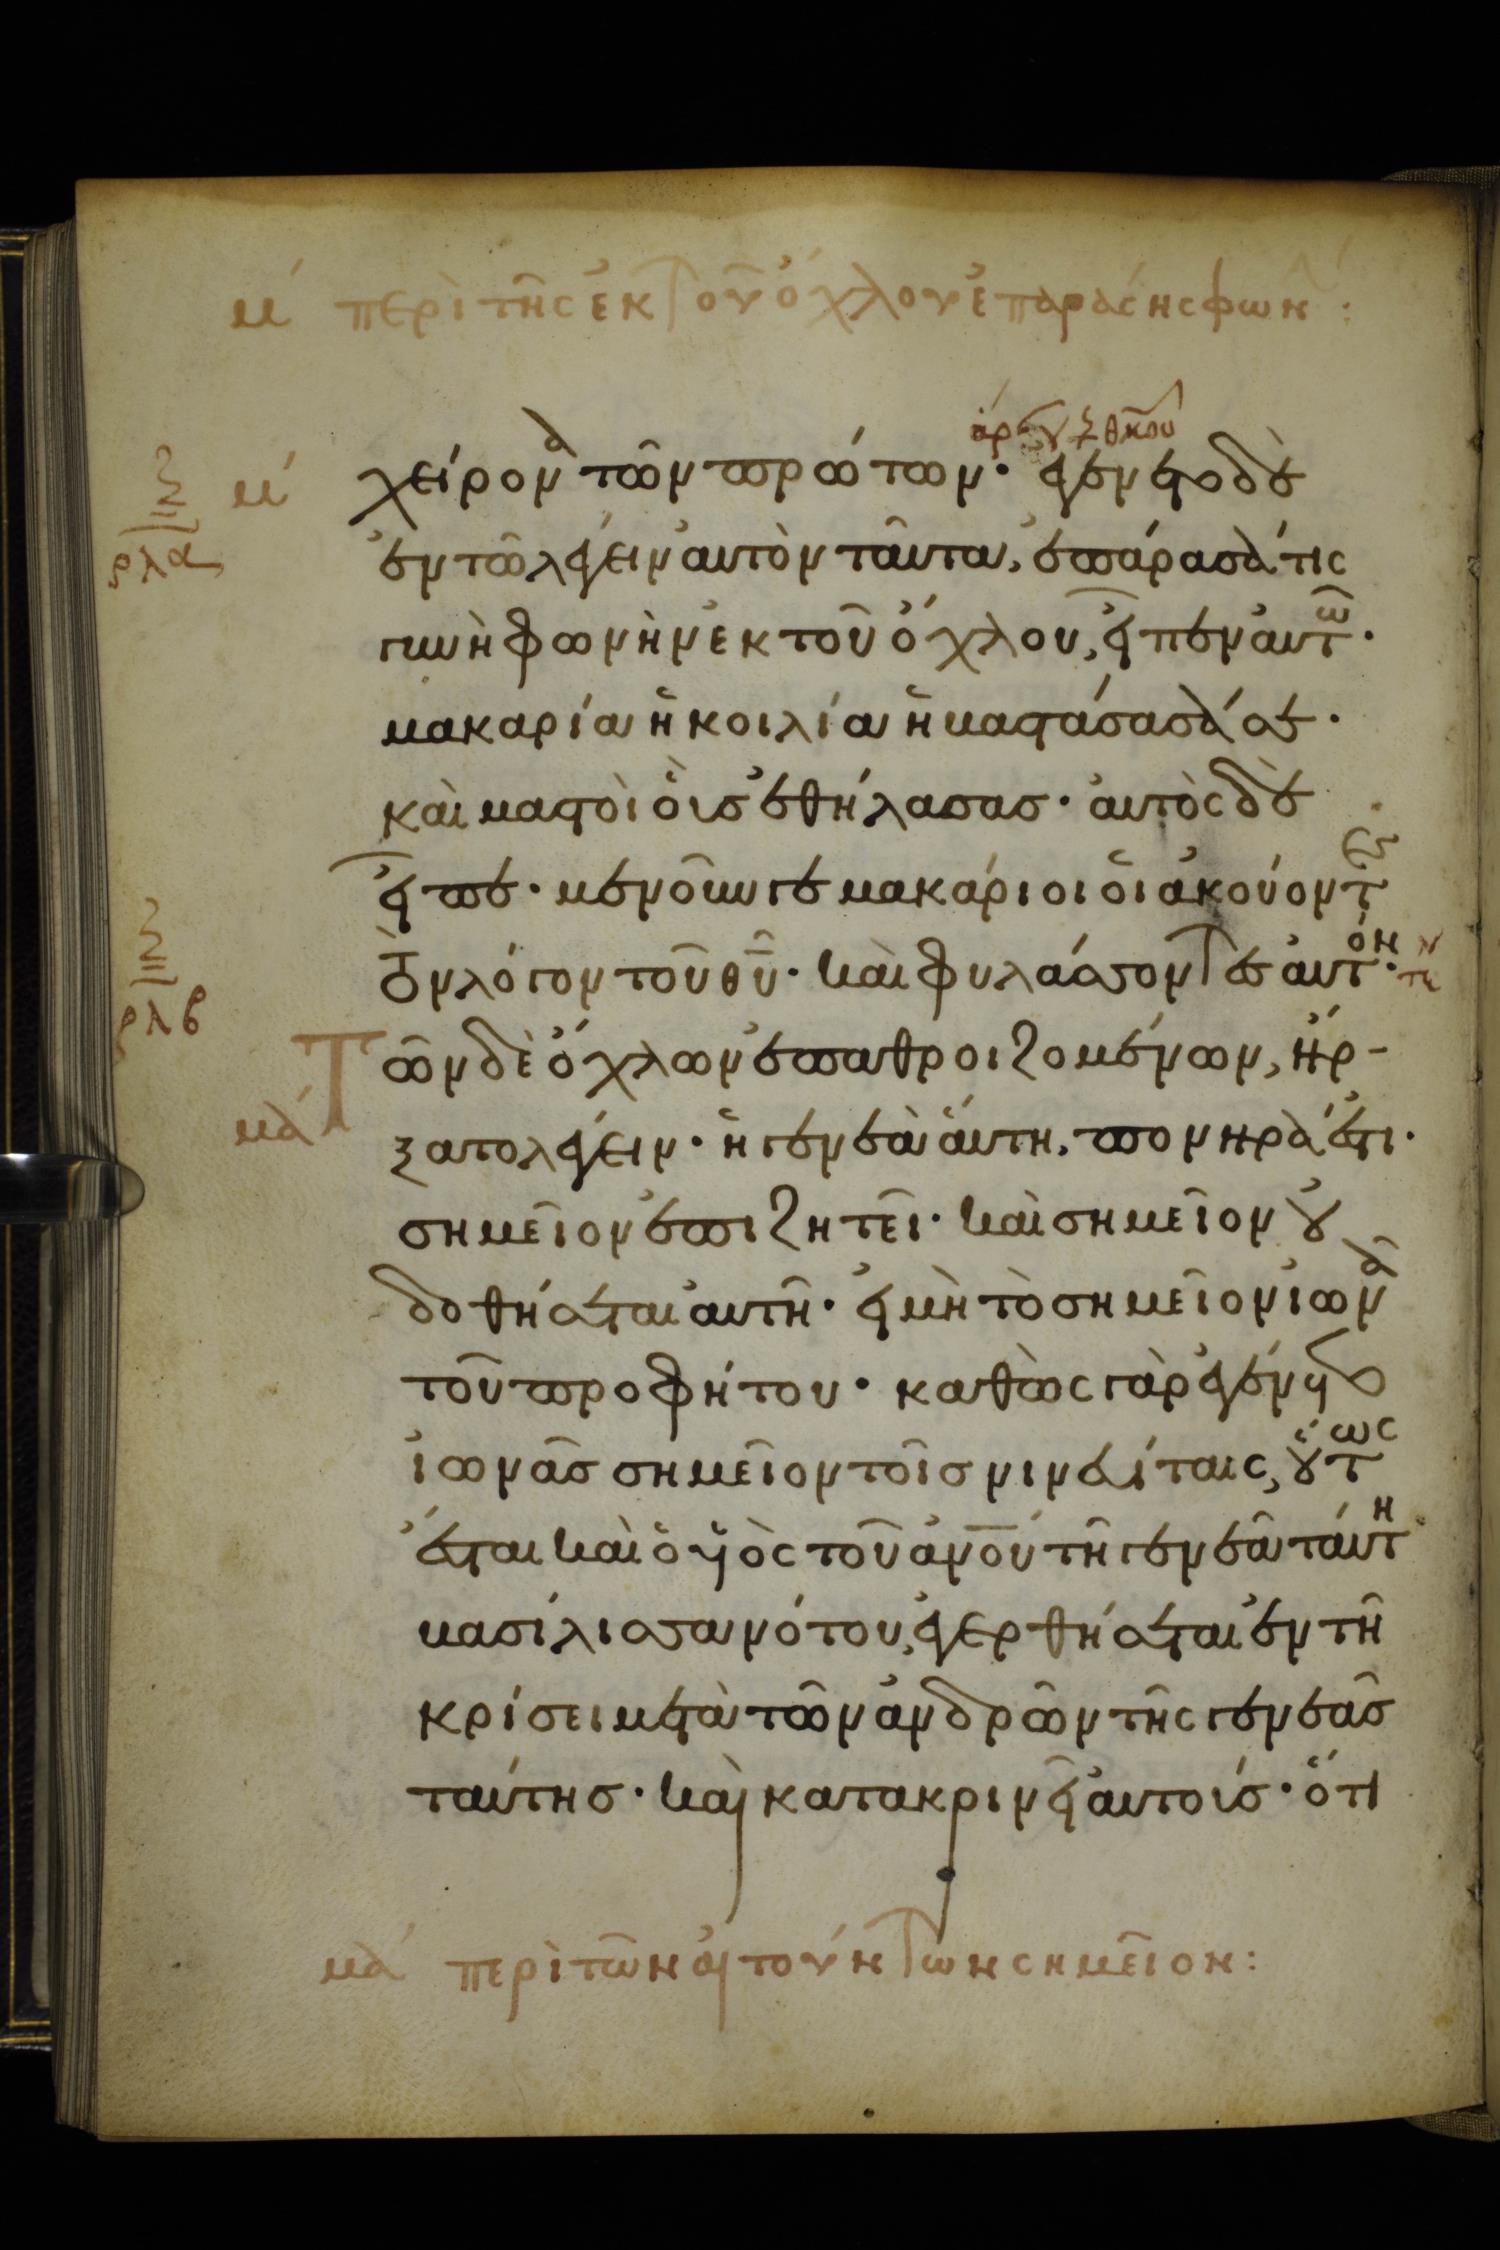 μ´ περὶ τῆς ἐκ τοῦ ὄχλου ἐπαράσης φων :
χείρονα τῶν πρώτων· ἐγένετο δὲ
μ´
ξ
ρλα
ἐν τῶ λέγειν αὐτὸν ταῦτα, ἐπάρασά τις
γυνὴ φωνὴν ἐκ τοῦ ὄχλου, εἶπεν αὐτῶ·
μακαρία ἡ κοιλία ἡ βαστάσασά σε·
καὶ μαστοὶ οὓς ἐθήλασας· αὐτὸς δὲ
εἶπε· μενοῦνγε μακάριοι οἱ ἀκούοντες
τὸν λόγον τοῦ θυ· καὶ φυλάσσοντες αὐτόν·
ρλβ
Τῶν δὲ ὄχλων ἐπαθροιζομένων, ἤρ-
μα´
ξατο λέγειν· ἡ γενεὰ αὕτη, πονηρά ἐστι·
σημεῖον ἐπιζητεῖ· καὶ σημεῖον οὐ
δοθήσεται αὐτῆ· εἰ μὴ τὸ σημεῖον ἰωνᾶ
τοῦ προφήτου· καθὼς γὰρ ἐγένετο
ἰωνᾶς σημεῖον τοῖς νινευίταις, οὕτως
ἔσται καὶ ὁ υἱὸς τοῦ ἀνου τῆ γενεᾶ ταύτη
βασίλισσα νότου, ἐγερθήσεται ἐν τῆ
κρίσει μετὰ τῶν ἀνδρῶν τῆς γενεᾶς
ταύτης· καὶ κατακρινεῖ αὐτούς· ὅτι
μα´ περὶ τῶν αἰτούντων σημεῖον :